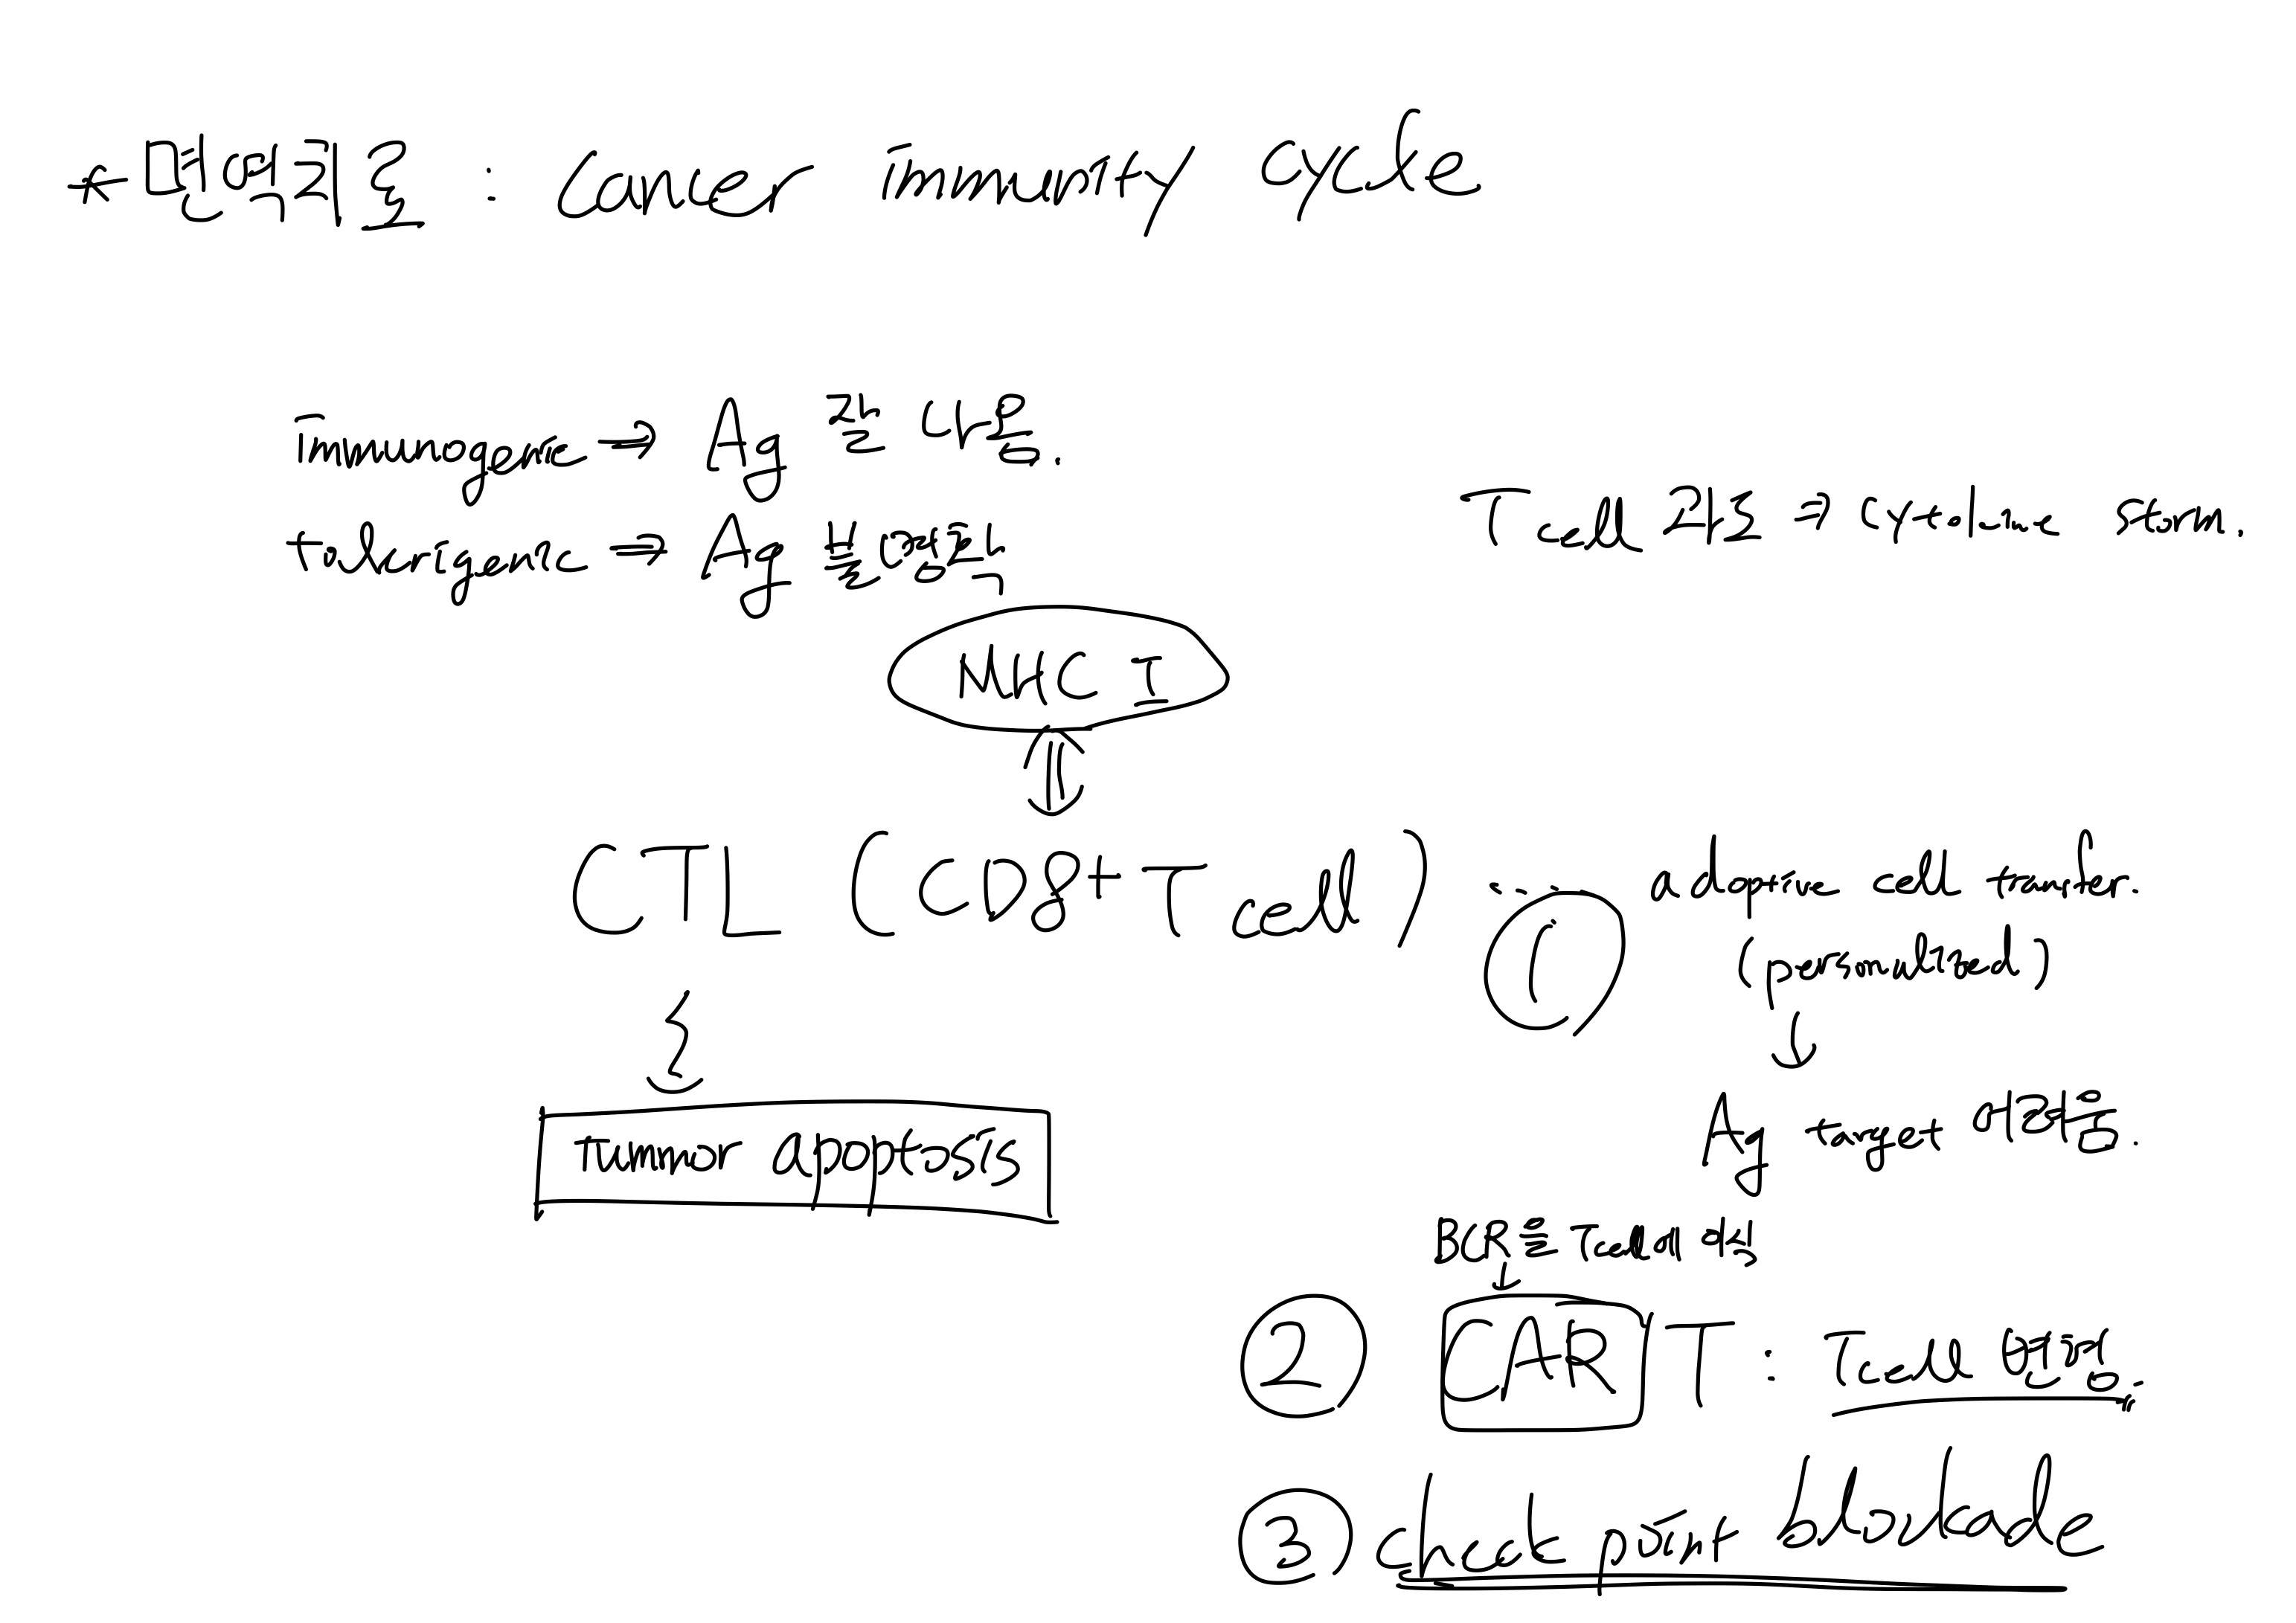 * 면역치료 : Cancer immunity cycle
immunogenic ⇒ Ag 잘 나옴.
tolerigenic ⇒ Ag 불명확
T cell 과도 ⇒ cytokine storm.
MHC I
CTL (CD8+ T cell) ...
① adoptive cell transfer.
(personalized)
↓
Ag target 어려움.
Tumor apoptosis
BCR을 T cell에 이식
② CAR T : T cell 변형.
③ check point blockade